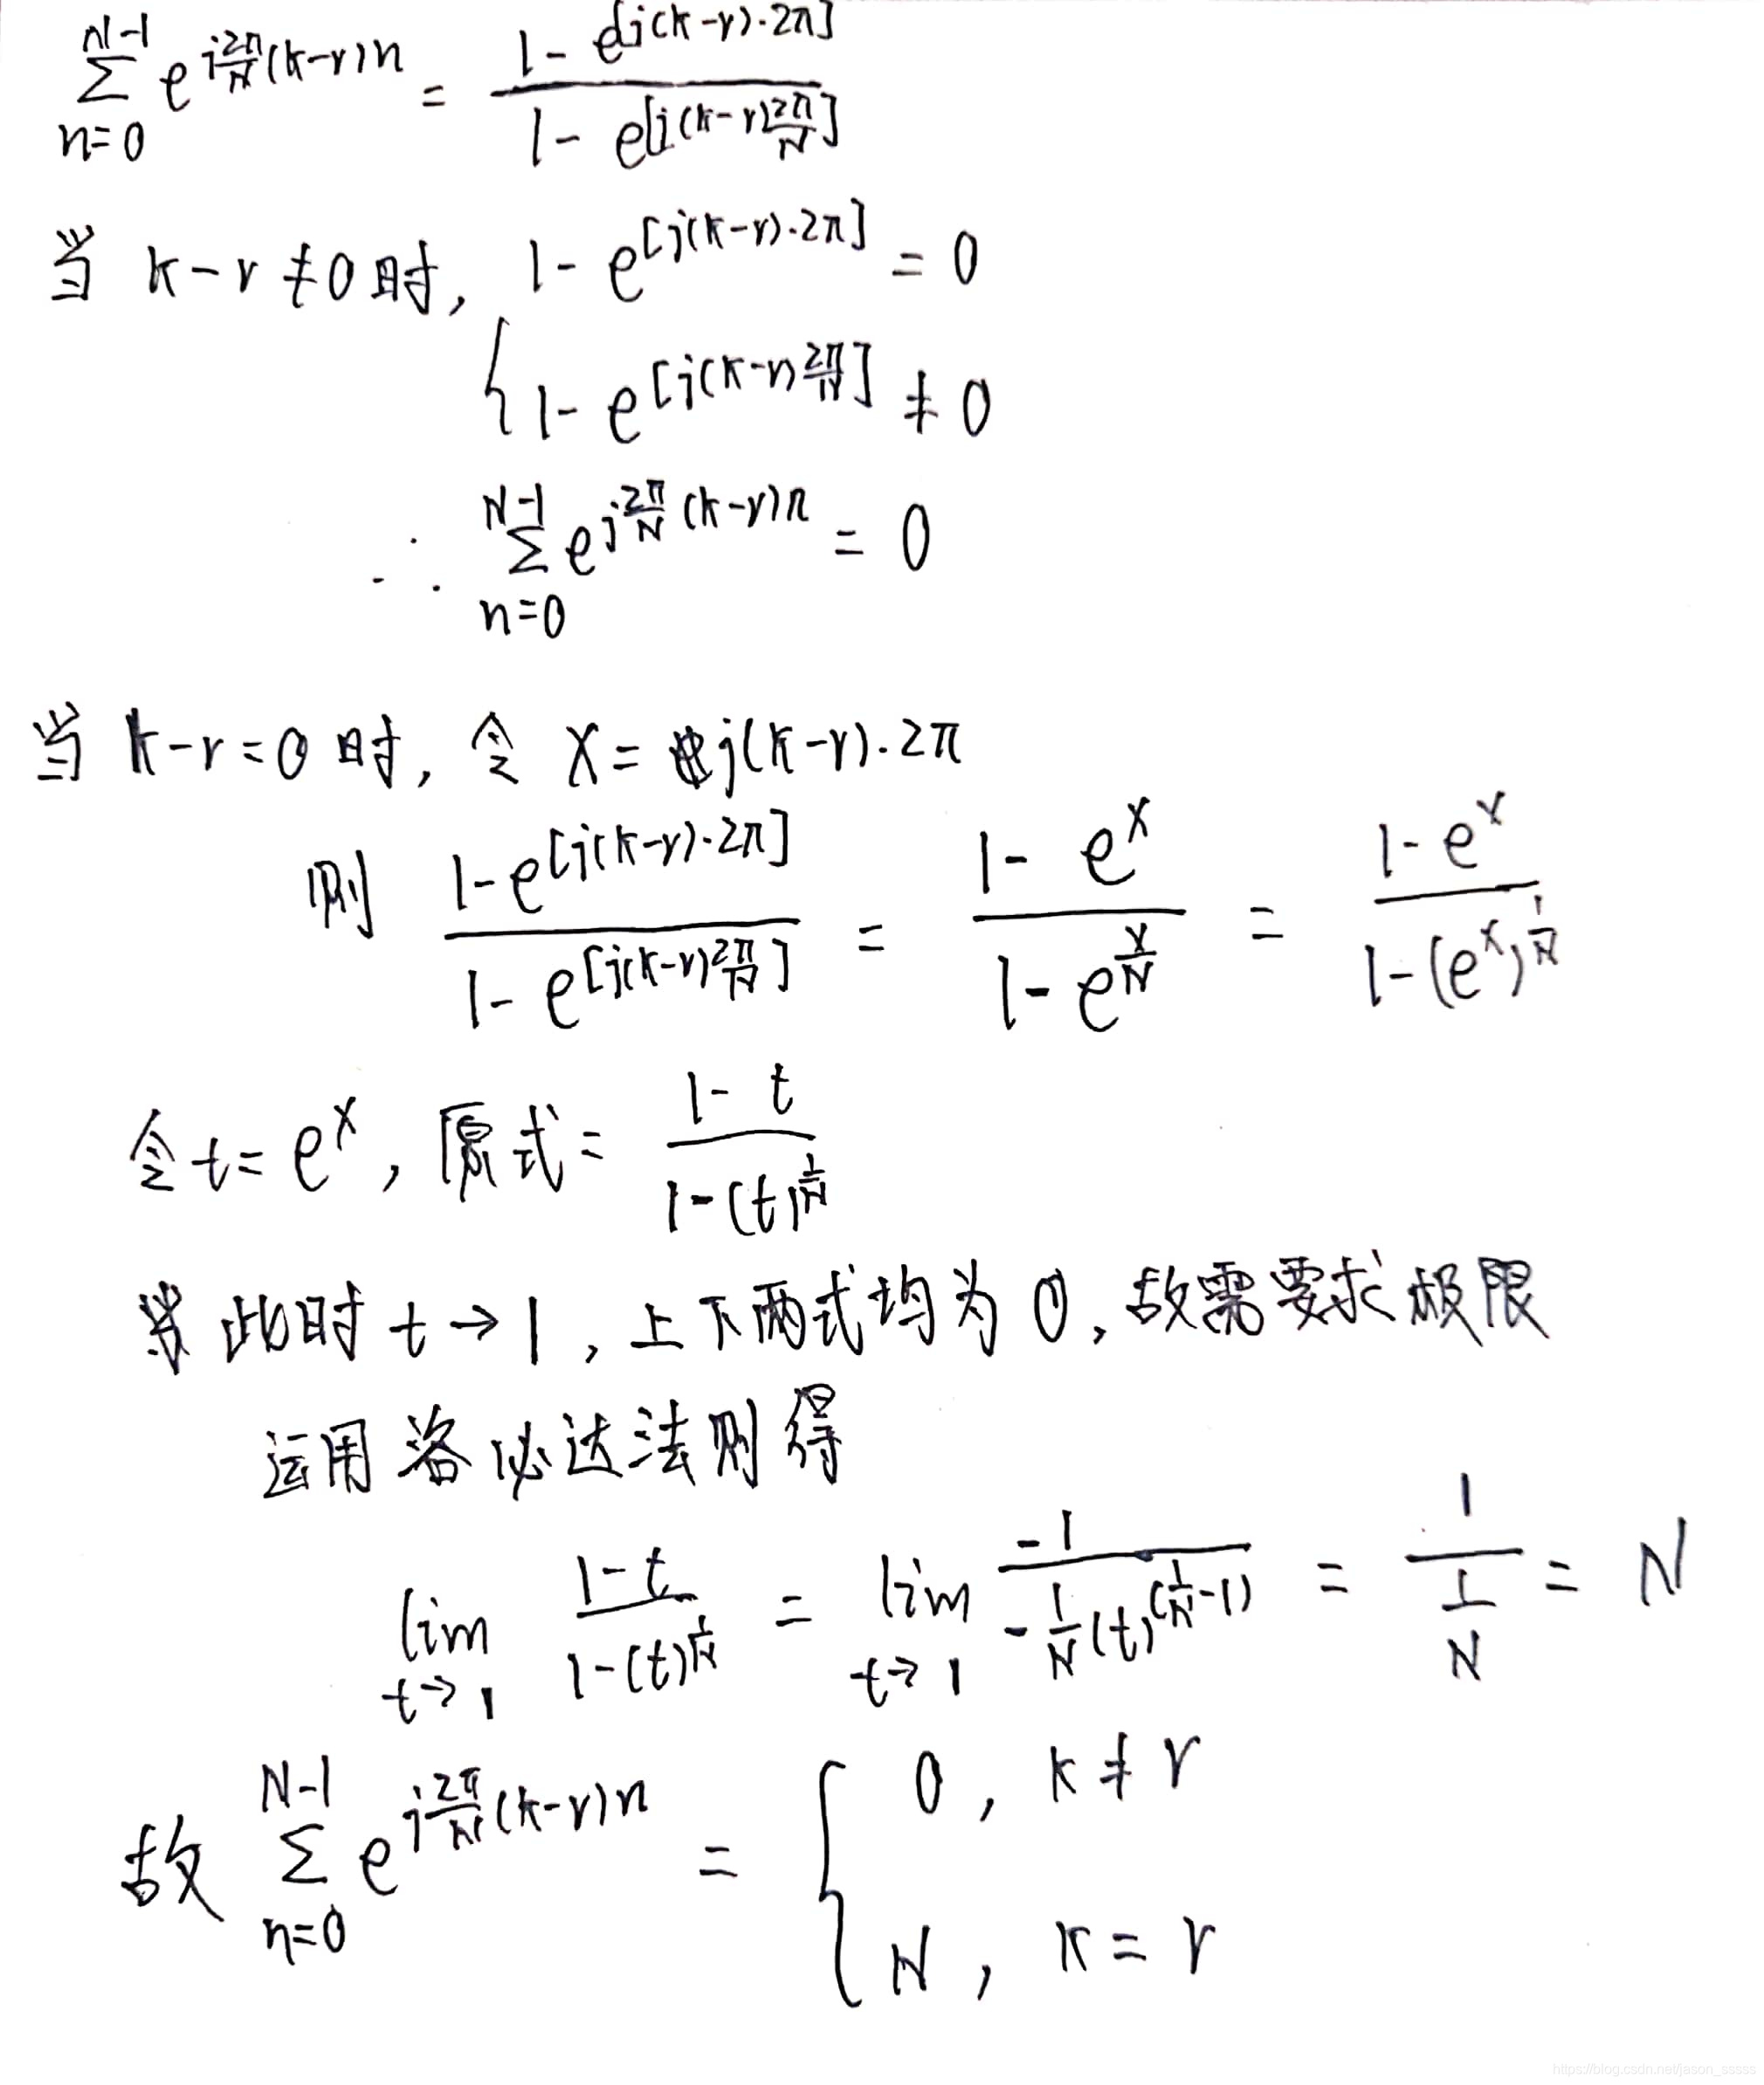 \sum_{n=0}^{N-1} e^{j\frac{2\pi}{N}(k-r)n} = \frac{1-e^{[j(k-r)\cdot 2\pi]}}{1-e^{[j(k-r)\frac{2\pi}{N}]}}
当 k-r≠0时, 1-e^{[j(k-r)\cdot 2\pi]} = 0
{ 1-e^{[j(k-r)\frac{2\pi}{N}]} ≠ 0
∴ \sum_{n=0}^{N-1} e^{j\frac{2\pi}{N}(k-r)n} = 0
当 k-r=0时, 令 X = j(k-r)\cdot 2\pi
则 \frac{1-e^{[j(k-r)\cdot 2\pi]}}{1-e^{[j(k-r)\frac{2\pi}{N}]}} = \frac{1-e^{x}}{1-e^{\frac{x}{N}}} = \frac{1-e^{x}}{1-(e^{x})^{\frac{1}{N}}}
令 t=e^{x}, 原式= \frac{1-t}{1-(t)^{\frac{1}{N}}}
此时 t→1, 上下两式均为0, 故需要求极限
运用洛必达法则得
\lim_{t→1} \frac{1-t}{1-(t)^{\frac{1}{N}}} = \lim_{t→1} \frac{-1}{-\frac{1}{N}(t)^{(\frac{1}{N}-1)}} = \frac{1}{\frac{1}{N}} = N
故 \sum_{n=0}^{N-1} e^{j\frac{2\pi}{N}(k-r)n} = { 0, k≠r
N, k=r
https://blog.csdn.net/jason_sssss